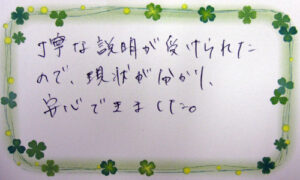 丁寧な説明が受けられた
ので、現状が分かり、
安心できました。